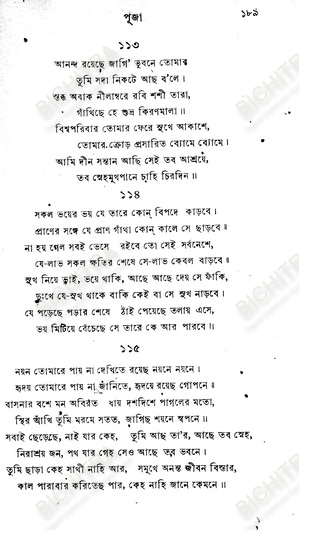 পূজা ১৮৯
১১৩
আনন্দ রয়েছে জাগি' ভুবনে তোমার
তুমি সদা নিকটে আছ ব'লে।
স্তব্ধ অবাক নীলাম্বরে রবি শশী তারা,
গাঁথিছে হে শুভ্র কিরণমালা॥
বিশ্বপরিবার তোমার ফেরে সুখে আকাশে,
তোমার ক্রোড় প্রসারিত ব্যোমে ব্যোমে।
আমি দীন সন্তান আছি সেই তব আশ্রয়ে,
তব স্নেহমুখপানে চাহি চিরদিন॥
১১৪
সকল ভয়ের ভয় যে তারে কোন্ বিপদে কাড়বে।
প্রাণের সঙ্গে যে প্রাণ গাঁথা কোন্ কালে সে ছাড়বে॥
না হয় গেল সবই ভেসে রইবে তো সেই সর্বনেশে,
যে-লাভ সকল ক্ষতির শেষে সে-লাভ কেবল বাড়বে॥
সুখ নিয়ে ভাই, ভয়ে থাকি, আছে আছে দেয় সে ফাঁকি,
দুঃখে যে-সুখ থাকে বাকি কেই বা সে সুখ নাড়বে।
যে পড়েছে পড়ার শেষে ঠাঁই পেয়েছে তলায় এসে,
ভয় মিটিয়ে বেঁচেছে সে তারে কে আর পারবে॥
১১৫
নয়ন তোমারে পায় না দেখিতে রয়েছ নয়নে নয়নে।
হৃদয় তোমারে পায় না জানিতে, হৃদয়ে রয়েছ গোপনে॥
বাসনার বশে মন অবিরত ধায় দশদিশে পাগলের মতো,
স্থির আঁখি তুমি মরমে সতত, জাগিছ শয়নে স্বপনে॥
সবাই ছেড়েছে, নাই যার কেহ, তুমি আছ তা'র, আছে তব স্নেহ,
নিরাশ্রয় জন, পথ যার গেহ সেও আছে তব ভবনে।
তুমি ছাড়া কেহ সাথী নাহি আর, সমুখে অনন্ত জীবন বিস্তার,
কাল পারাবার করিতেছ পার, কেহ নাহি জানে কেমনে॥